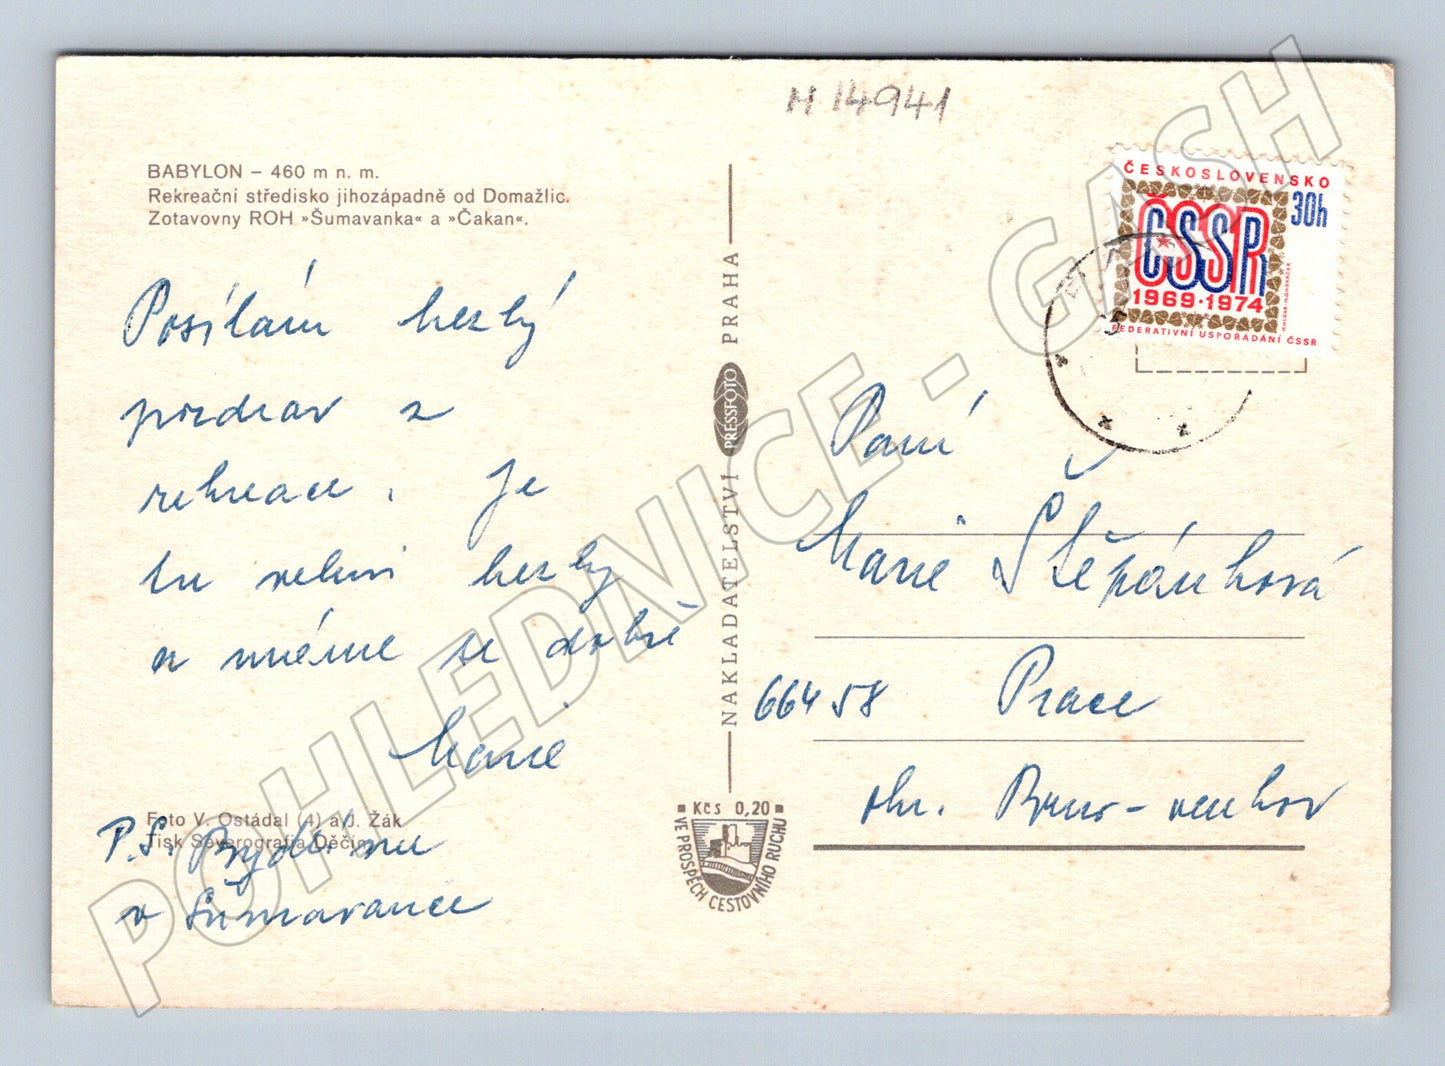 H 14941
BABYLON – 460 m n. m.
Rekreační středisko jihozápadně od Domažlic.
Zotavovny ROH »Šumavanka« a »Čakan«.
Posílám hezký
pozdrav z
rekreace. Je
tu velmi hezky
a máme se dobře
Marie
Foto V. Ostádal (4) a J. Žák
Tisk Severografia Děčín
P.S. Bydlíme
v Šumavance
NAKLADATELSTVÍ PRESSFOTO PRAHA
Kčs 0,20
VE PROSPĚCH CESTOVNÍHO RUCHU
ČESKOSLOVENSKO
30h
ČSSR
1969·1974
FEDERATIVNÍ USPOŘÁDÁNÍ ČSSR
Paní
Marie Štěpánková
66458 Prace
okr. Brno-venkov
POHLEDNICE - GASH